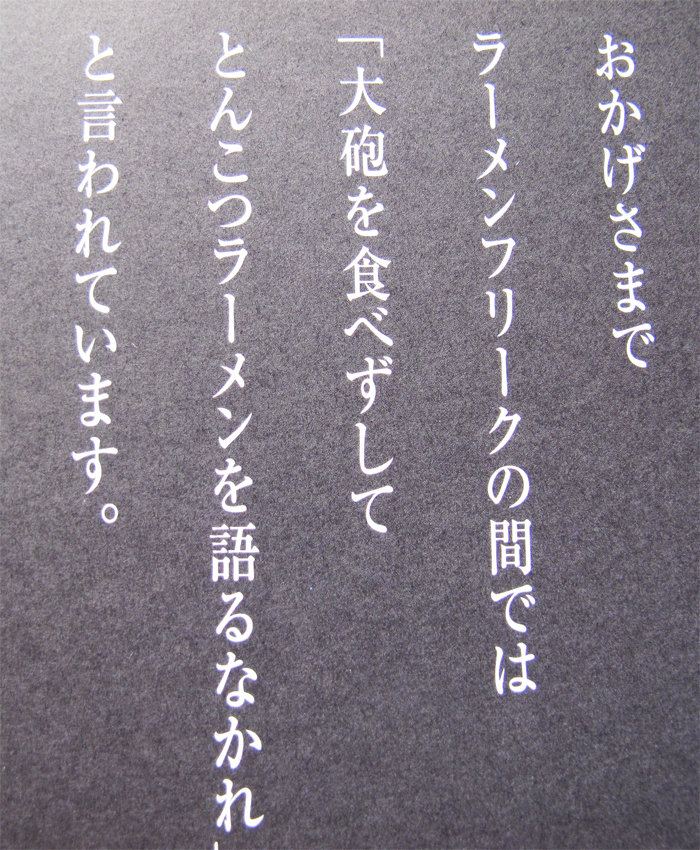 おかげさまで
ラーメンフリークの間では
「大砲を食べずして
とんこつラーメンを語るなかれ」
と言われています。